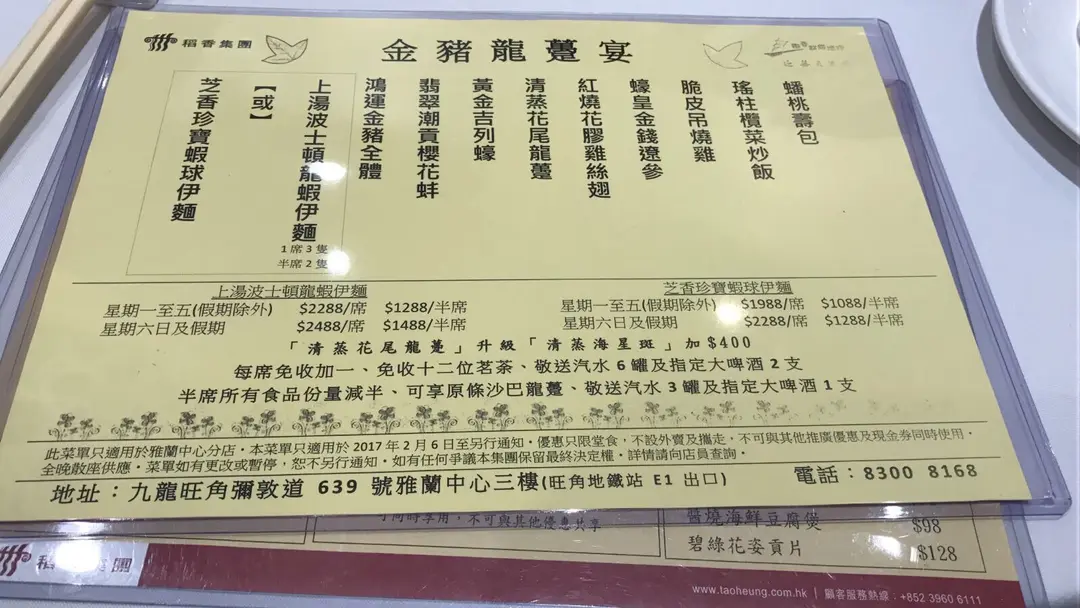 稻香集團
金豬龍躉宴
鴻運金豬全體
翡翠潮貢櫻花蚌
黃金吉列蠔
清蒸花尾龍躉
紅燒花膠雞絲翅
蠔皇金錢遼參
脆皮吊燒雞
瑤柱欖菜炒飯
蟠桃壽包
上湯波士頓龍蝦伊麵
1席3隻
半席2隻
【或】
芝香珍寶蝦球伊麵
上湯波士頓龍蝦伊麵
星期一至五(假期除外) $2288/席 $1288/半席
星期六日及假期 $2488/席 $1488/半席
芝香珍寶蝦球伊麵
星期一至五(假期除外) $1988/席 $1088/半席
星期六日及假期 $2288/席 $1288/半席
「清蒸花尾龍躉」升級「清蒸海星斑」加$400
每席免收加一、免收十二位茗茶、敬送汽水 6 罐及指定大啤酒 2 支
半席所有食品份量減半、可享原條沙巴龍躉、敬送汽水 3 罐及指定大啤酒 1 支
此菜單只適用於雅蘭中心分店。本菜單只適用於 2017 年 2 月 6 日至另行通知。優惠只限堂食，不設外賣及攜走，不可與其他推廣優惠及現金券同時使用。
全晚散座供應。菜單如有更改或暫停，恕不另行通知。如有任何爭議本集團保留最終決定權。詳情請向店員查詢。
地址：九龍旺角彌敦道 639 號雅蘭中心三樓(旺角地鐵站 E1 出口)
電話：8300 8168
可同時享用，不可與其他優惠共享
醬燒海鮮豆腐煲 $98
碧綠花姿貢片 $128
稻香集團
www.taoheung.com.hk | 顧客服務熱線：+852 3960 6111